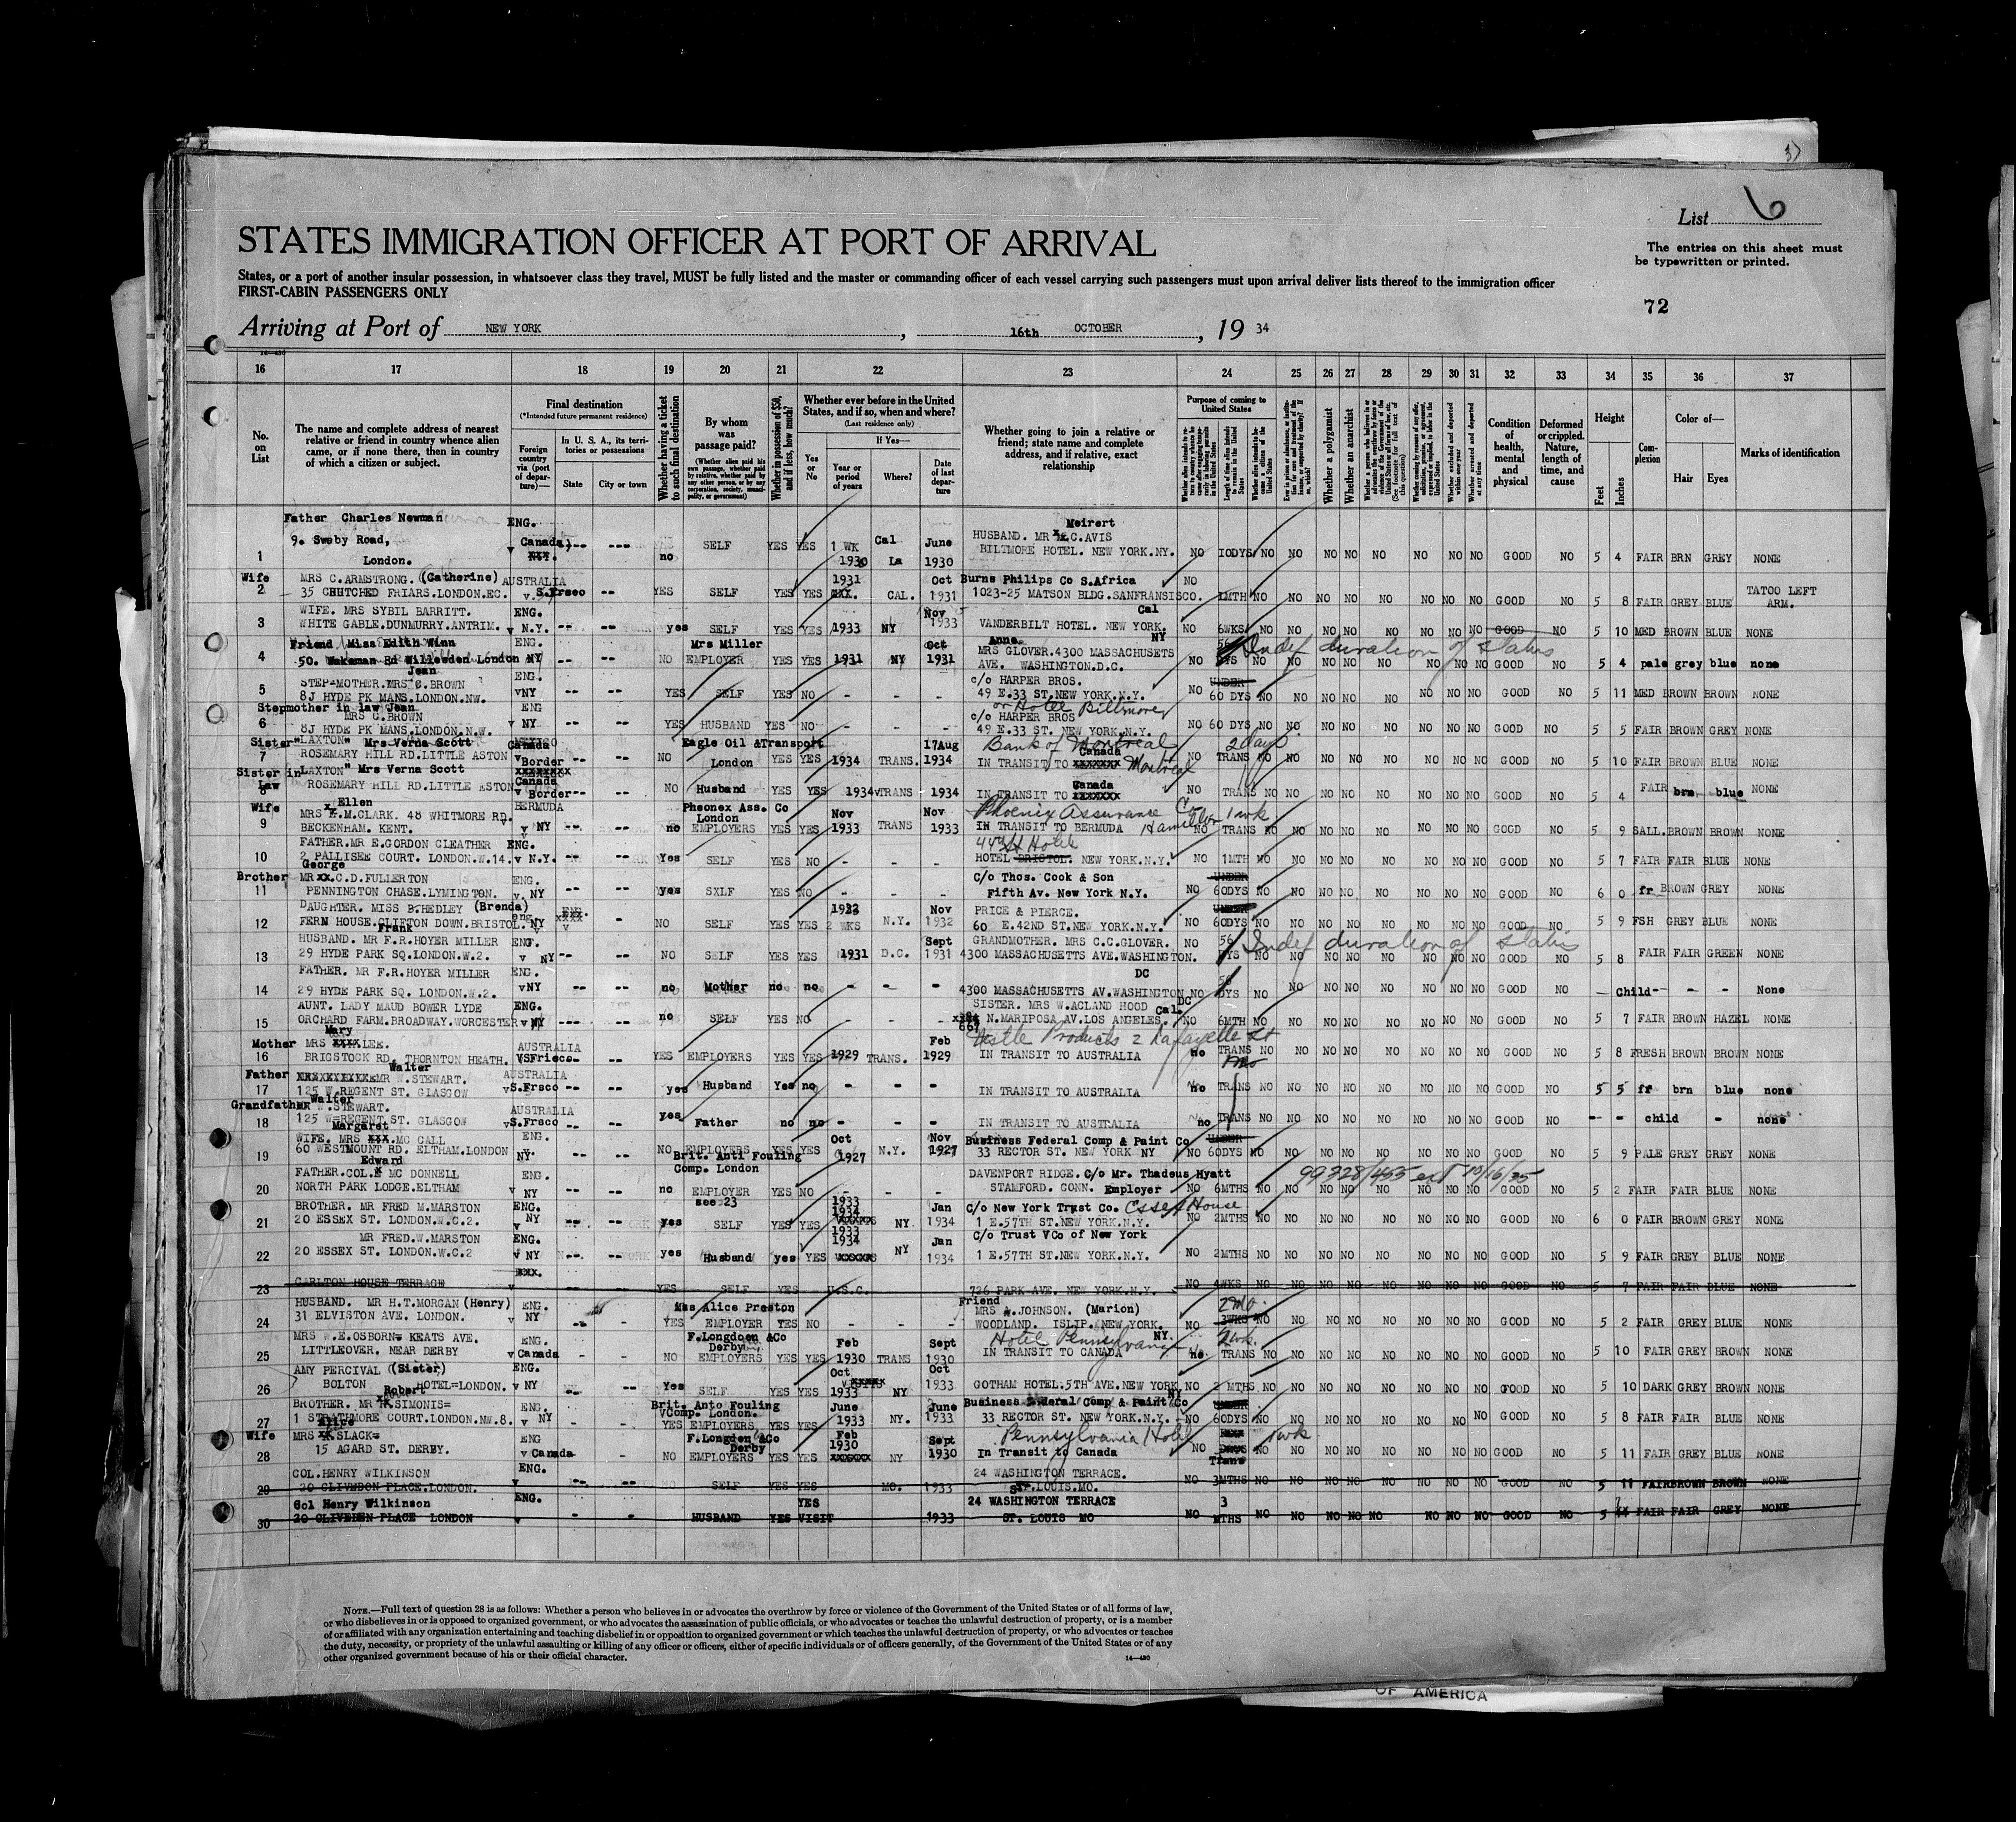 3)
List 6
STATES IMMIGRATION OFFICER AT PORT OF ARRIVAL
The entries on this sheet must
be typewritten or printed.
States, or a port of another insular possession, in whatsoever class they travel, MUST be fully listed and the master or commanding officer of each vessel carrying such passengers must upon arrival deliver lists thereof to the immigration officer
FIRST-CABIN PASSENGERS ONLY
72
Arriving at Port of NEW YORK, 16th OCTOBER, 19 34
14—430
16 17 18 19 20 21 22 23 24 25 26 27 28 29 30 31 32 33 34 35 36 37
No. on List
The name and complete address of nearest relative or friend in country whence alien came, or if none there, then in country of which a citizen or subject.
Final destination
(*Intended future permanent residence)
Foreign country via (port of departure)—
In U. S. A., its territories or possessions
State City or town
Whether having a ticket to such final destination
By whom was passage paid?
(Whether alien paid his own passage, whether paid by relative, whether paid by any other person, or by any corporation, society, municipality, or government)
Whether in possession of $50, and if less, how much?
Whether ever before in the United States, and if so, when and where?
(Last residence only)
Yes or No
If Yes—
Year or period of years
Where?
Date of last departure
Whether going to join a relative or friend; state name and complete address, and if relative, exact relationship
Purpose of coming to United States
Length of time alien intends to remain in the United States
Whether a polygamist
Whether an anarchist
Condition of health, mental and physical
Deformed or crippled. Nature, length of time, and cause
Height
Feet Inches
Complexion
Color of—
Hair Eyes
Marks of identification
Father Charles Newman ENG. Meirert
9. Sweby Road, v Canada) --- --- SELF YES YES 1 WK Cal June HUSBAND. MR C.AVIS
1 London. no 1930 La 1930 BILTMORE HOTEL. NEW YORK.NY. NO 10DYS NO NO NO NO NO NO NO NO GOOD NO 5 4 FAIR BRN GREY NONE
Wife MRS C.ARMSTRONG. (Catherine) AUSTRALIA 1931 Oct Burns Philips Co S.Africa NO
2 35 CRUTCHED FRIARS.LONDON.EC. v S.Frsco -- YES SELF YES YES CAL. 1931 1023-25 MATSON BLDG.SANFRANSISCO. 1MTH NO NO NO NO NO NO NO NO GOOD NO 5 8 FAIR GREY BLUE TATOO LEFT ARM.
WIFE. MRS SYBIL BARRITT. ENG. Nov Cal
3 WHITE GABLE.DUNMURRY.ANTRIM. v N.Y. -- -- yes SELF YES YES 1933 NY 1933 VANDERBILT HOTEL. NEW YORK. NY NO 6WKS NO NO NO NO NO NO NO NO GOOD NO 5 10 MED BROWN BLUE NONE
Friend Miss Edith Winn ENG. Mrs Miller Oct Anne. 56 Indef duration of status
4 50. Wakeman Rd Willesden London v NY -- -- NO EMPLOYER YES YES 1931 NY 1931 MRS GLOVER.4300 MASSACHUSETS AVE. WASHINGTON.D.C. NO DYS NO NO NO NO NO NO NO NO GOOD NO 5 4 pale grey blue none
Jean ENG. c/o HARPER BROS. UNDER
5 STEP-MOTHER.MRS C.BROWN 8J HYDE PK MANS.LONDON.NW. vNY -- -- YES SELF YES NO - - - 49 E.33 ST.NEW YORK.N.Y. NO 60 DYS NO NO NO NO NO NO NO NO GOOD NO 5 11 MED BROWN BROWN NONE
Stepmother in law Jean ENG or Hotel Biltmore
6 MRS C.BROWN 8J HYDE PK MANS.LONDON.N.W. v NY -- -- YES HUSBAND YES NO - - - c/o HARPER BROS 49 E.33 ST. NEW YORK.N.Y. NO 60 DYS NO NO NO NO NO NO NO NO GOOD NO 5 5 FAIR BROWN GREY NONE
Sister "LAXTON" Mrs Verna Scott Canada Eagle Oil &Transport 17Aug Bank of Montreal 2 days
7 ROSEMARY HILL RD.LITTLE ASTON v Border -- NO London YES YES 1934 TRANS. 1934 IN TRANSIT TO Canada Montreal NO TRANS NO NO NO NO NO NO NO NO GOOD NO 5 10 FAIR BROWN BLUE NONE
Sister in Law "LAXTON" Mrs Verna Scott Canada
8 ROSEMARY HILL RD.LITTLE ASTON v Border -- NO Husband YES YES 1934 vTRANS 1934 IN TRANSIT TO Canada NO TRANS NO NO NO NO NO NO NO NO GOOD NO 5 4 FAIR brn blue NONE
Wife Ellen BERMUDA Pheonex Ass. Co London Nov Nov Phoenix Assurance Co 1 wk
9 MRS M.CLARK. 48 WHITMORE RD. BECKENHAM. KENT. v NY -- -- no EMPLOYERS YES YES 1933 TRANS 1933 IN TRANSIT TO BERMUDA Hamilton NO TRANS NO NO NO NO NO NO NO NO GOOD NO 5 9 SALL.BROWN BROWN NONE
FATHER.MR E.GORDON CLEATHER ENG. 44 St Hotel
10 2 PALLISER COURT. LONDON.W.14. v N.Y. -- -- Yes SELF YES NO - - - HOTEL BRISTOL. NEW YORK.N.Y. NO 1MTH NO NO NO NO NO NO NO NO GOOD NO 5 7 FAIR FAIR BLUE NONE
Brother George MR C.D.FULLERTON ENG. c/o Thos. Cook & Son UNDER
11 PENNINGTON CHASE.LYMINGTON. v. NY -- -- yes SXLF YES NO - - - Fifth Av. New York N.Y. NO 60DYS NO NO NO NO NO NO NO NO GOOD NO 6 0 fr BROWN GREY NONE
DAUGHTER. MISS B.HEDLEY (Brenda) eng 1932 Nov PRICE & PIERCE. UNDER
12 FERN HOUSE.CLIFTON DOWN.BRISTOL. NY - NO SELF YES YES 2 WKS N.Y. 1932 60 E.42ND ST.NEW YORK.N.Y. NO 60DYS NO NO NO NO NO NO NO NO GOOD NO 5 9 FSH GREY BLUE NONE
Frank
HUSBAND. MR F.R.HOYER MILLER ENG. Sept GRANDMOTHER. MRS C.C.GLOVER. NO 56 Indef duration of status
13 29 HYDE PARK SQ.LONDON.W.2. v NY -- -- NO SELF YES YES 1931 D.C. 1931 4300 MASSACHUSETTS AVE.WASHINGTON. DYS NO NO NO NO NO NO NO NO GOOD NO 5 8 FAIR FAIR GREEN NONE
FATHER. MR F.R.HOYER MILLER ENG. DC 56
14 29 HYDE PARK SQ. LONDON.W.2. vNY -- -- no Mother no no - - - 4300 MASSACHUSETTS AV.WASHINGTON DC NO DYS NO NO NO NO NO NO NO NO GOOD NO Child - - - None
AUNT. LADY MAUD BOWER LYDE ENG. SISTER. MRS W.ACLAND HOOD Cal.
15 ORCHARD FARM.BROADWAY.WORCESTER v NY --- -- no SELF YES NO - - - 667 N.MARIPOSA AV.LOS ANGELES. NO 6MTH NO NO NO NO NO NO NO NO GOOD NO 5 7 FAIR BROWN HAZEL NONE
Mother Mary MRS LEE. AUSTRALIA Feb Nestle Products 2 Lafayette St
16 BRIGSTOCK RD. THORNTON HEATH. VSFrisco -- -- YES EMPLOYERS YES YES 1929 TRANS. 1929 IN TRANSIT TO AUSTRALIA no TRANS NO NO NO NO NO NO NO NO GOOD NO 5 8 FRESH BROWN BROWN NONE
Father Walter MR W.STEWART. AUSTRALIA 1 mo
17 125 W.REGENT ST. GLASGOW vS.Frsco -- -- yes Husband Yes no - - - IN TRANSIT TO AUSTRALIA no TRANS NO NO NO NO NO NO NO NO GOOD NO 5 5 fr brn blue none
Grandfather Walter W.STEWART. AUSTRALIA
18 125 W=REGENT ST. GLASGOW vS.Frsco -- -- yes Father no no - - - IN TRANSIT TO AUSTRALIA no TRANS NO NO NO NO NO NO NO NO GOOD NO - - child - none
Margaret
WIFE. MRS .MC CALL ENG. Oct Nov Business Federal Comp & Paint Co UNDER
19 60 WESTMOUNT RD. ELTHAM.LONDON NY -- -- NO EMPLOYERS YES YES 1927 N.Y. 1927 33 RECTOR ST. NEW YORK NY NO 60DYS NO NO NO NO NO NO NO NO GOOD NO 5 9 PALE GREY GREY NONE
Brit. Anti Fouling Comp. London
Edward
FATHER.COL. MC DONNELL ENG. DAVENPORT RIDGE. C/o Mr. Thadeus Hyatt 99328/455 ext 10/16/35
20 NORTH PARK LODGE.ELTHAM v NY -- -- no EMPLOYER see 23 YES NO - - - STAMFORD. CONN. Employer NO 6MTHS NO NO NO NO NO NO NO NO GOOD NO 5 2 FAIR FAIR BLUE NONE
BROTHER. MR FRED M.MARSTON ENG. 1933 1934 Jan C/o New York Trust Co. Essex House
21 20 ESSEX ST. LONDON.W.C.2. v NY -- -- yes SELF YES YES NY. 1934 1 E.57TH ST.NEW YORK.N.Y. NO 2MTHS NO NO NO NO NO NO NO NO GOOD NO 6 0 FAIR BROWN GREY NONE
MR FRED.W.MARSTON ENG. 1933 1934 Jan C/o Trust VCo of New York
22 20 ESSEX ST. LONDON.W.C.2 v NY yes Husband yes YES NY 1934 1 E.57TH ST.NEW YORK.N.Y. NO 2MTHS NO NO NO NO NO NO NO NO GOOD NO 5 9 FAIR GREY BLUE NONE
23 CARLTON HOUSE TERRACE v YES SELF YES U.S.C. 726 PARK AVE. NEW YORK.N.Y. NO 4WKS NO NO NO NO NO NO NO NO GOOD NO 5 7 FAIR FAIR BLUE NONE
HUSBAND. MR H.T.MORGAN (Henry) ENG. Mrs Alice Preston Friend MRS .JOHNSON. (Marion) 2 mo.
24 31 ELVISTON AVE. LONDON. v NY -- YES EMPLOYER YES NO - - - WOODLAND. ISLIP. NEW YORK. NO 3WKS NO NO NO NO NO NO NO NO GOOD NO 5 2 FAIR GREY BLUE NONE
MRS W.E.OSBORN= KEATS AVE. ENG. F.Longdoen &Co Derby Feb Sept Hotel Pennsylvania NY. 2 wk.
25 LITTLEOVER. NEAR DERBY v Canada - -- NO EMPLOYERS YES YES 1930 TRANS 1930 IN TRANSIT TO CANADA no. TRANS NO NO NO NO NO NO NO NO GOOD NO 5 10 FAIR GREY BROWN NONE
AMY PERCIVAL (Sister) ENG. Oct Oct
26 BOLTON HOTEL=LONDON. v NY -- Yes SELF YES YES 1933 NY 1933 GOTHAM HOTEL.5TH AVE.NEW YORK NY NO 2 MTHS NO NO NO NO NO NO NO NO GOOD NO 5 10 DARK GREY BROWN NONE
Robert
BROTHER. MR .SIMONIS= ENG. Brit. Anto Fouling vComp. London. June June Business Federal Comp & Paint Co UNDER
27 1 STRATHMORE COURT.LONDON.NW.8. v NY -- -- YES EMPLOYERS YES YES 1933 NY. 1933 33 RECTOR ST. NEW YORK.N.Y. NO 60DYS NO NO NO NO NO NO NO NO GOOD NO 5 8 FAIR FAIR BLUE NONE
Wife Alice MRS SLACK= ENG F.Longden &Co Derby Feb 1930 Sept Pennsylvania Hotel 1 wk
28 15 AGARD ST. DERBY. v Canada -- NO EMPLOYERS YES YES NY 1930 In Transit to Canada NO Trans NO NO NO NO NO NO NO NO GOOD NO 5 11 FAIR GREY BLUE NONE
COL.HENRY WILKINSON ENG. 24 WASHINGTON TERRACE.
29 20 CLIVEDEN PLACE.LONDON. v -- -- NO SELF YES YES MO. 1933 ST.LOUIS.MO. NO 3MTHS NO NO NO NO NO NO NO NO GOOD NO 5 11 FAIR BROWN BROWN NONE
Col Henry Wilkinson ENG. YES 24 WASHINGTON TERRACE 3
30 20 CLIVEDEN PLACE LONDON v - - HUSBAND YES VISIT 1933 ST. LOUIS MO NO MTHS NO NO NO NO NO NO NO NO GOOD NO 5 FAIR FAIR GREY NONE
NOTE.—Full text of question 28 is as follows: Whether a person who believes in or advocates the overthrow by force or violence of the Government of the United States or of all forms of law,
or who disbelieves in or is opposed to organized government, or who advocates the assassination of public officials, or who advocates or teaches the unlawful destruction of property, or is a member
of or affiliated with any organization entertaining and teaching disbelief in or opposition to organized government or which teaches the unlawful destruction of property, or who advocates or teaches
the duty, necessity, or propriety of the unlawful assaulting or killing of any officer or officers, either of specific individuals or of officers generally, of the Government of the United States or of any
other organized government because of his or their official character.
14—430
OF AMERICA